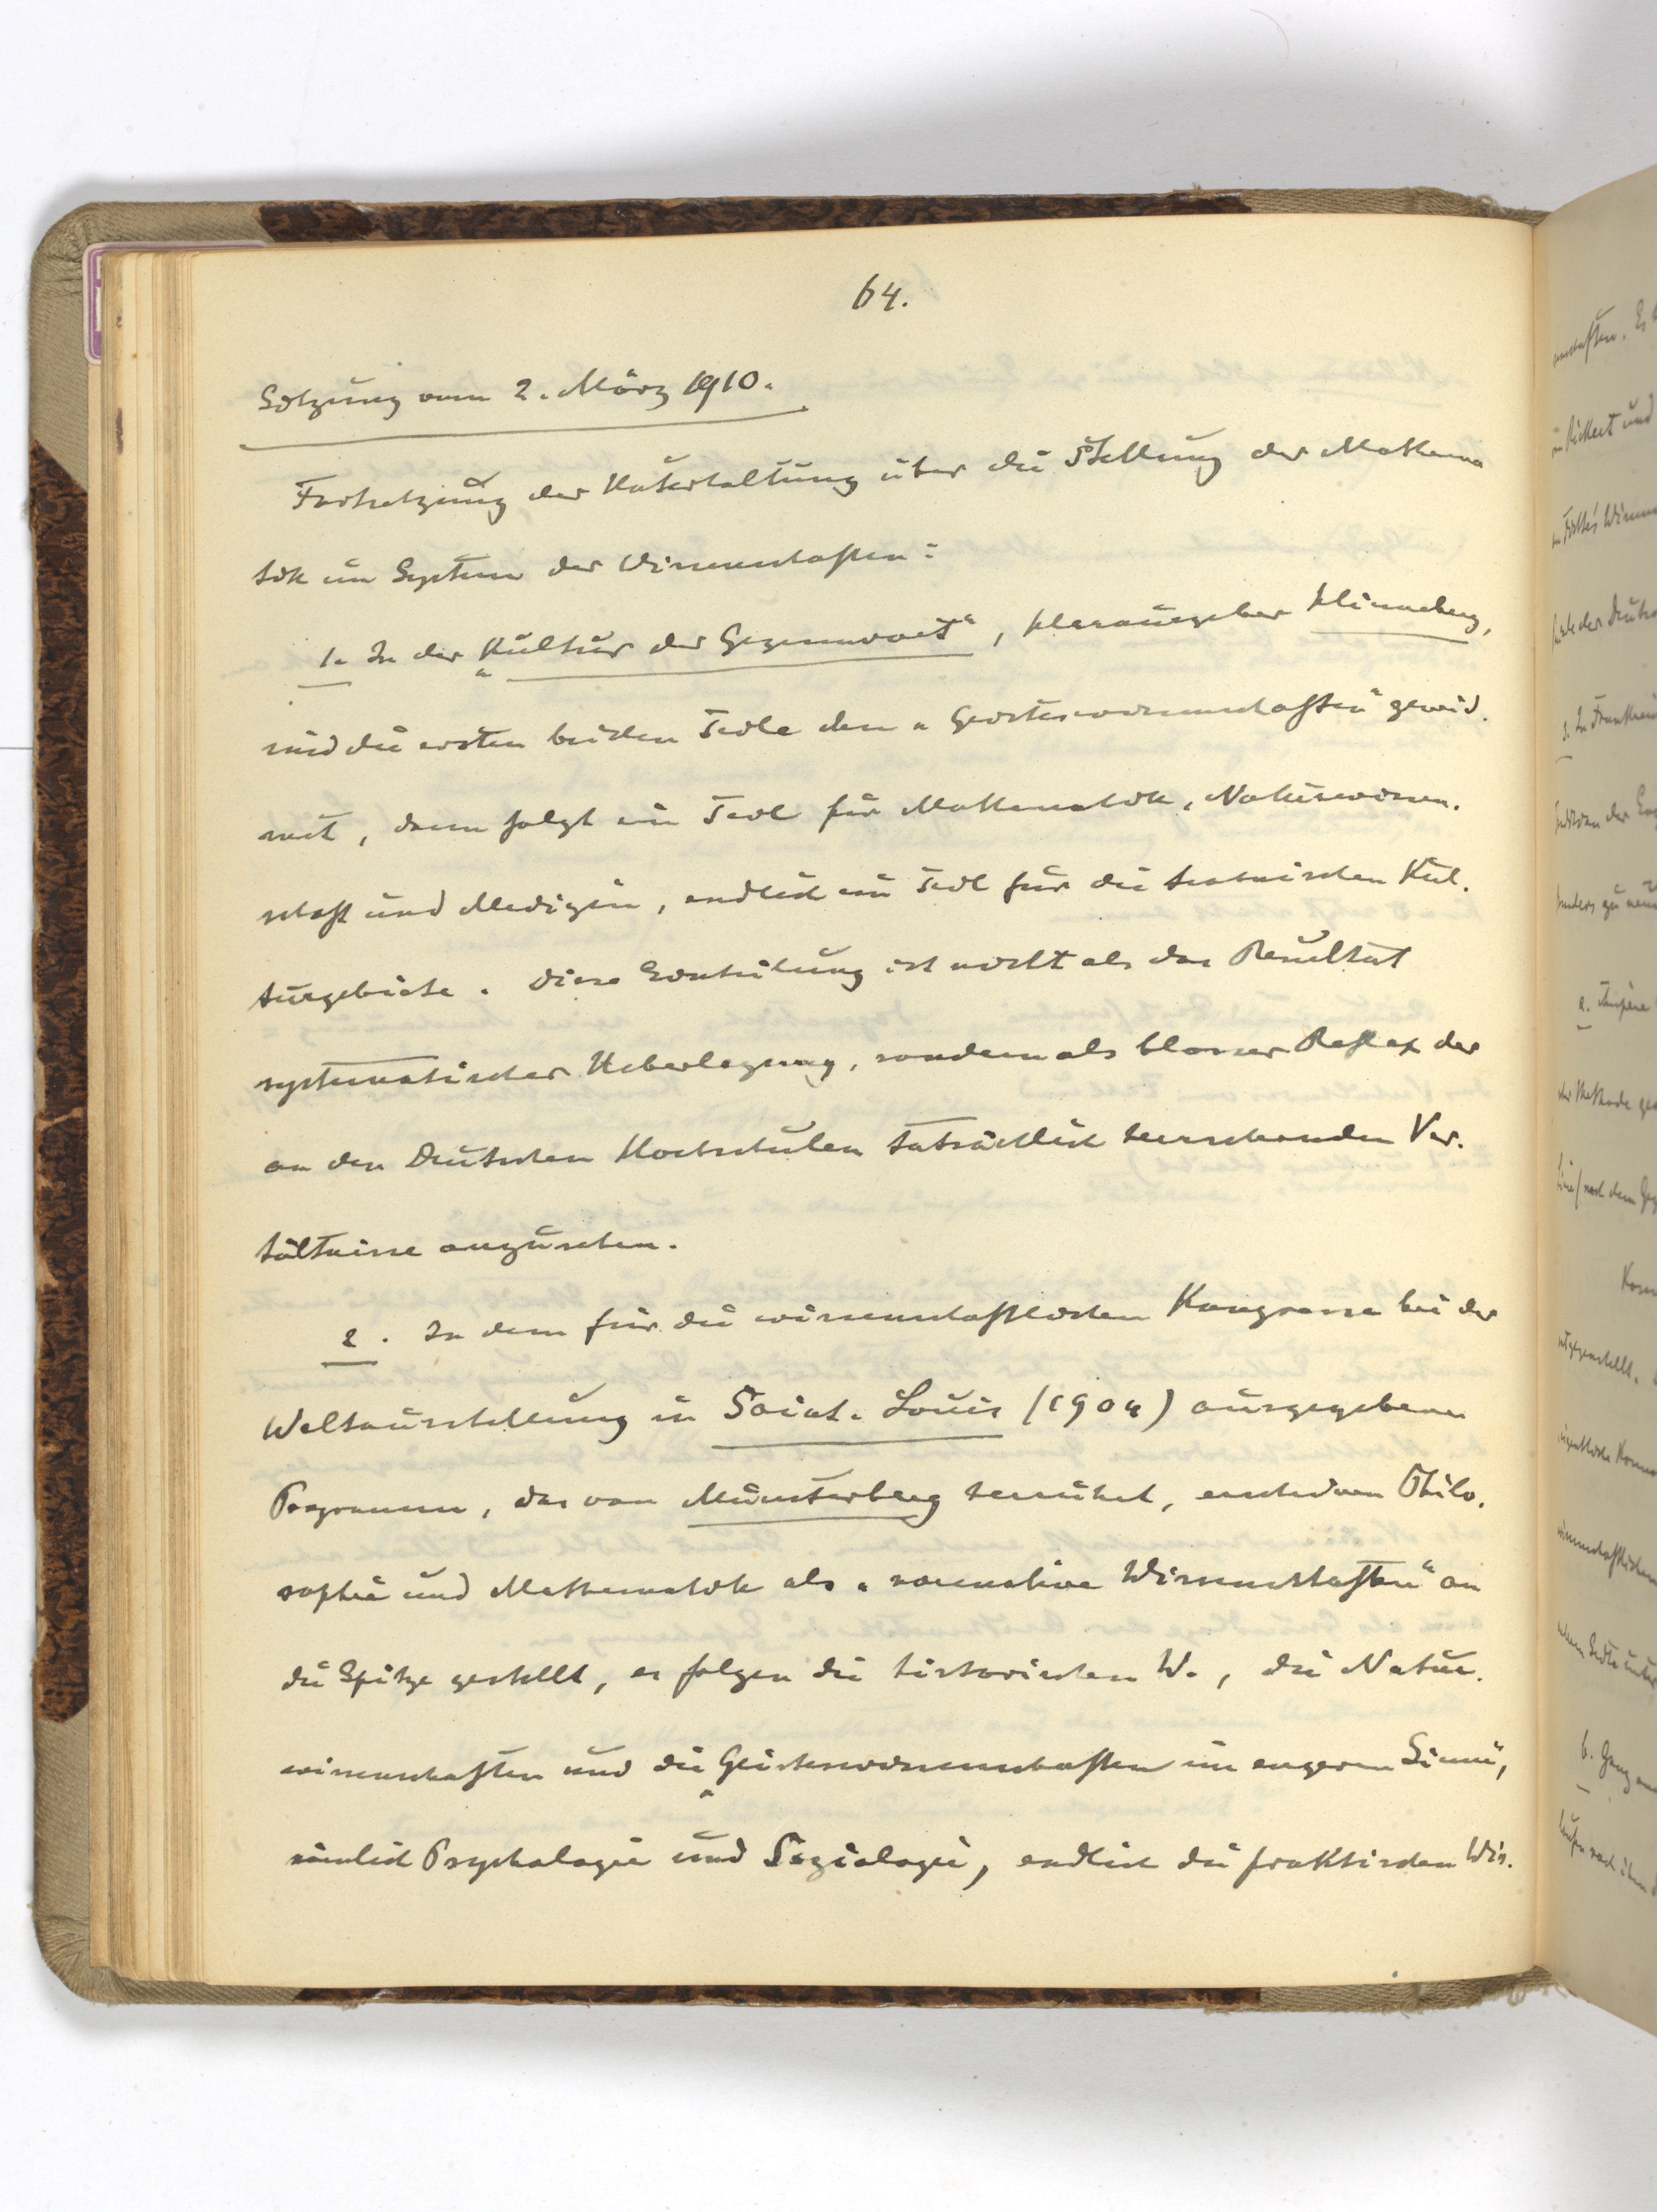 64.
Sitzung vom 2. März 1910.
Fortsetzung der Unterhaltung über die Stellung der Mathema
tik im System der Wissenschaften:
1. In der „Kultur der Gegenwart", Herausgeber Hinneberg,
sind die ersten beiden Teile den „Geisteswissenschaften" gewid-
met, dann folgt ein Teil für Mathematik, Naturwissen-
schaft und Medizin, endlich ein Teil für die technischen Kul-
turgebiete. Diese Einteilung ist nicht als das Resultat
systematischer Ueberlegung, sondern als blosser Reflex der
an den Deutschen Hochschulen tatsächlich herrschenden Ver-
hältnisse anzusehen.
2. In dem für die wissenschaftlichen Kongresse bei der
Weltausstellung in Saint-Louis (1904) ausgegebenen
Programm, das von Münsterberg herrührt, erscheinen Philo-
sophie und Mathematik als „normative Wissenschaften" an
die Spitze gestellt, es folgen die historischen W., die Natur-
wissenschaften und die „Geisteswissenschaften im engeren Sinne",
nämlich Psychologie und Soziologie, endlich die praktischen Wis-
in Rickert und
3. In Frankreich
a. Ampère